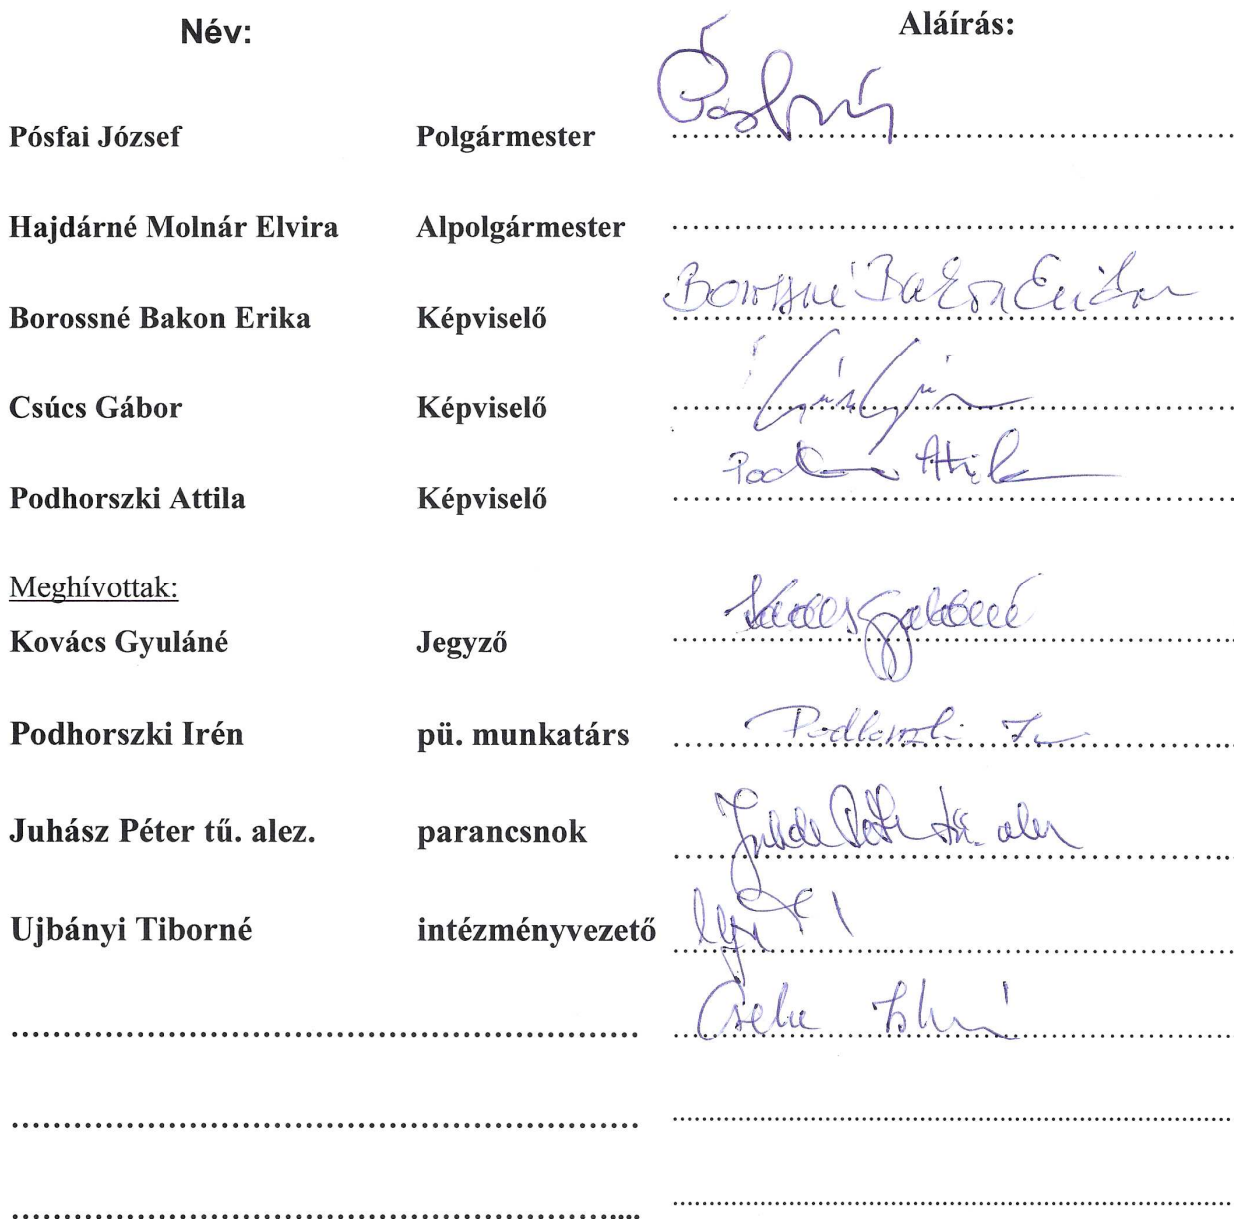 Név: Aláírás:
Pósfai József Polgármester
Hajdárné Molnár Elvira Alpolgármester
Borossné Bakon Erika Képviselő Borossné Bakon Erika
Csúcs Gábor Képviselő
Podhorszki Attila Képviselő Attila
Meghívottak:
Kovács Gyuláné Jegyző Kovács Gyuláné
Podhorszki Irén pü. munkatárs Podhorszki
Juhász Péter tű. alez. parancsnok Juhász Péter tű. alez
Ujbányi Tiborné intézményvezető